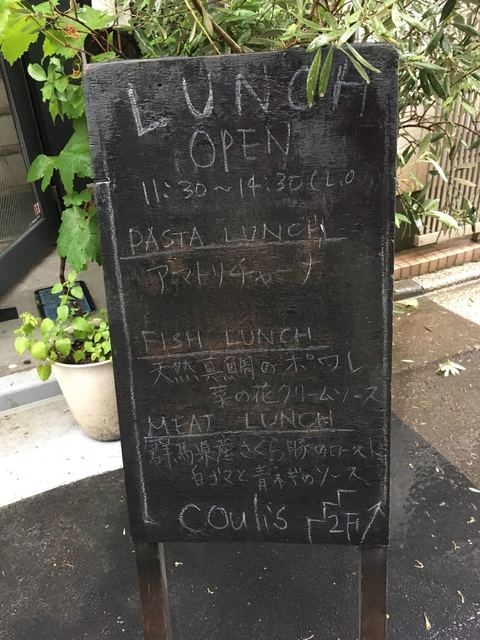 LUNCH
OPEN
11:30~14:30(L.O.)
PASTA LUNCH
アマトリチャーナ
FISH LUNCH
天然真鯛のポワレ
菜の花クリームソース
MEAT LUNCH
群馬県産さくら豚のロースト
白ゴマと青ネギのソース
coulis 2F